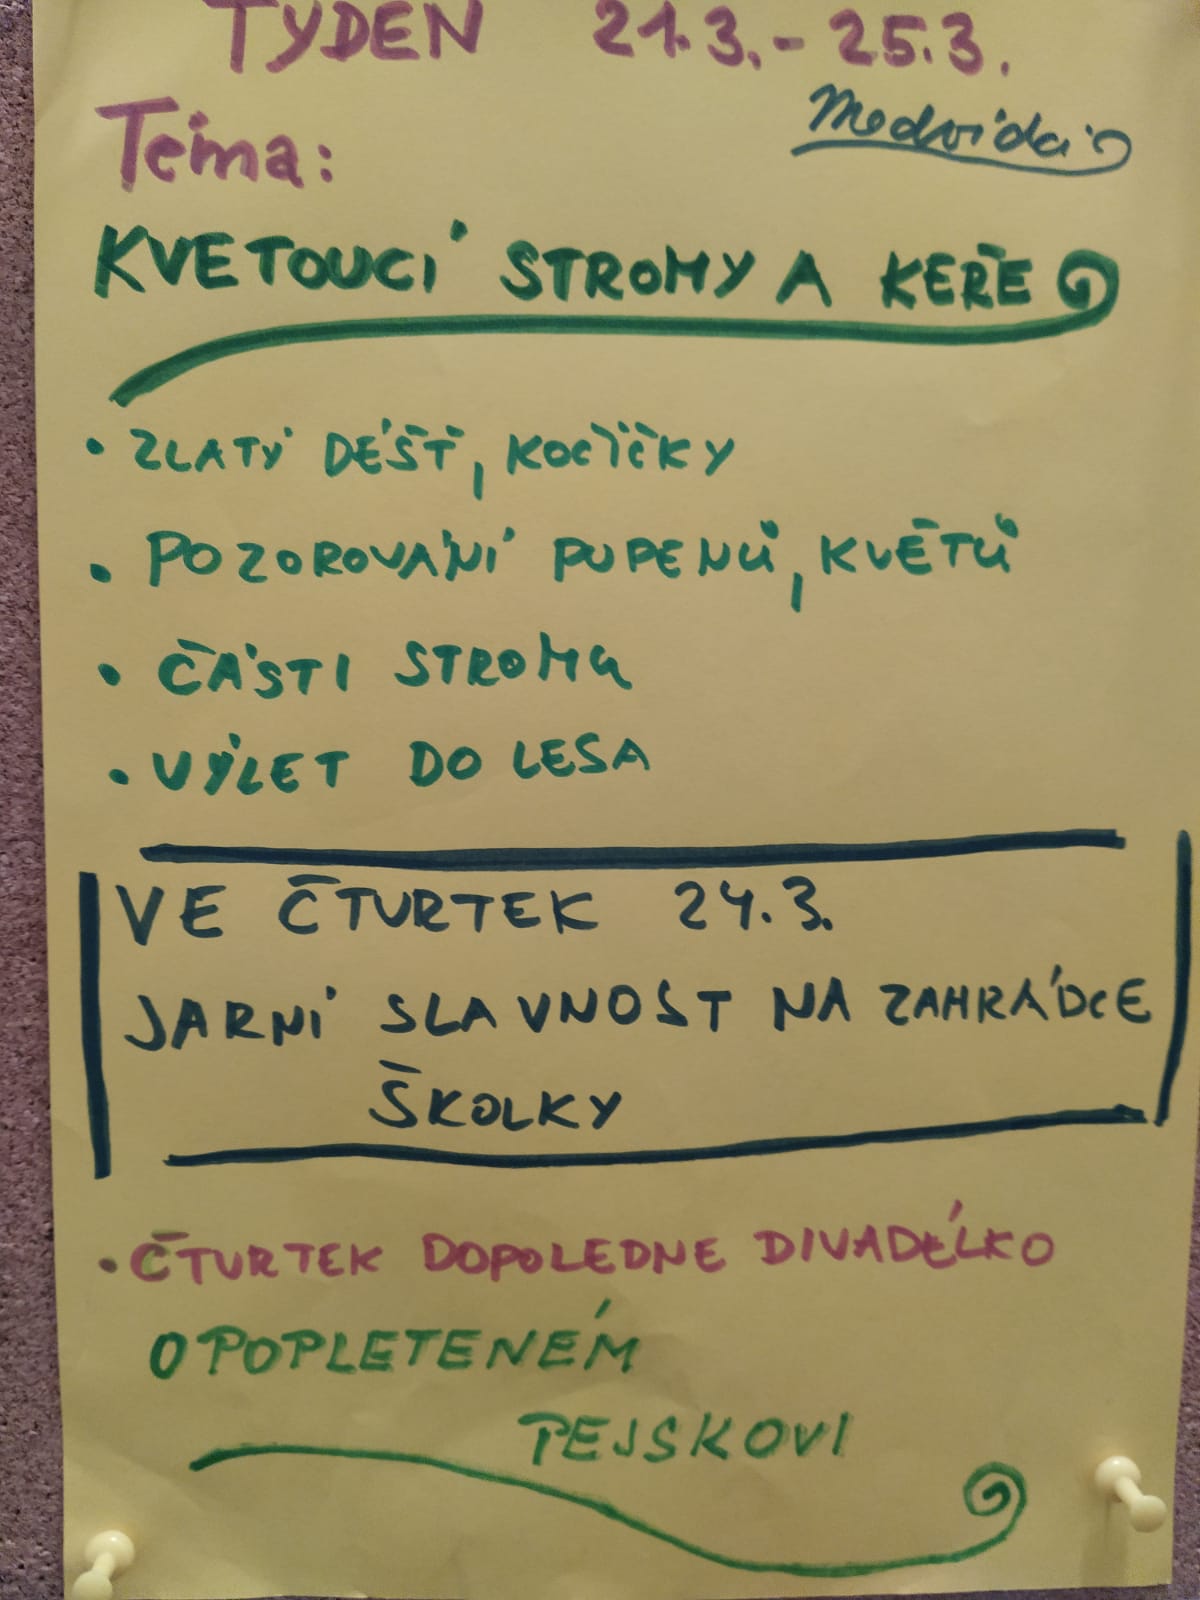 TÝDEN 21.3.-25.3.
Téma:
Medvíďa
KVETOUCÍ STROMY A KEŘE
• ZLATÝ DÉŠŤ, KOČIČKY
• POZOROVÁNÍ PUPENŮ, KVĚTŮ
• ČÁSTI STROMU
• VÝLET DO LESA
VE ČTVRTEK 24.3.
JARNÍ SLAVNOST NA ZAHRÁDCE
ŠKOLKY
• ČTVRTEK DOPOLEDNE DIVADÉLKO
O POPLETENÉM
PEJSKOVI